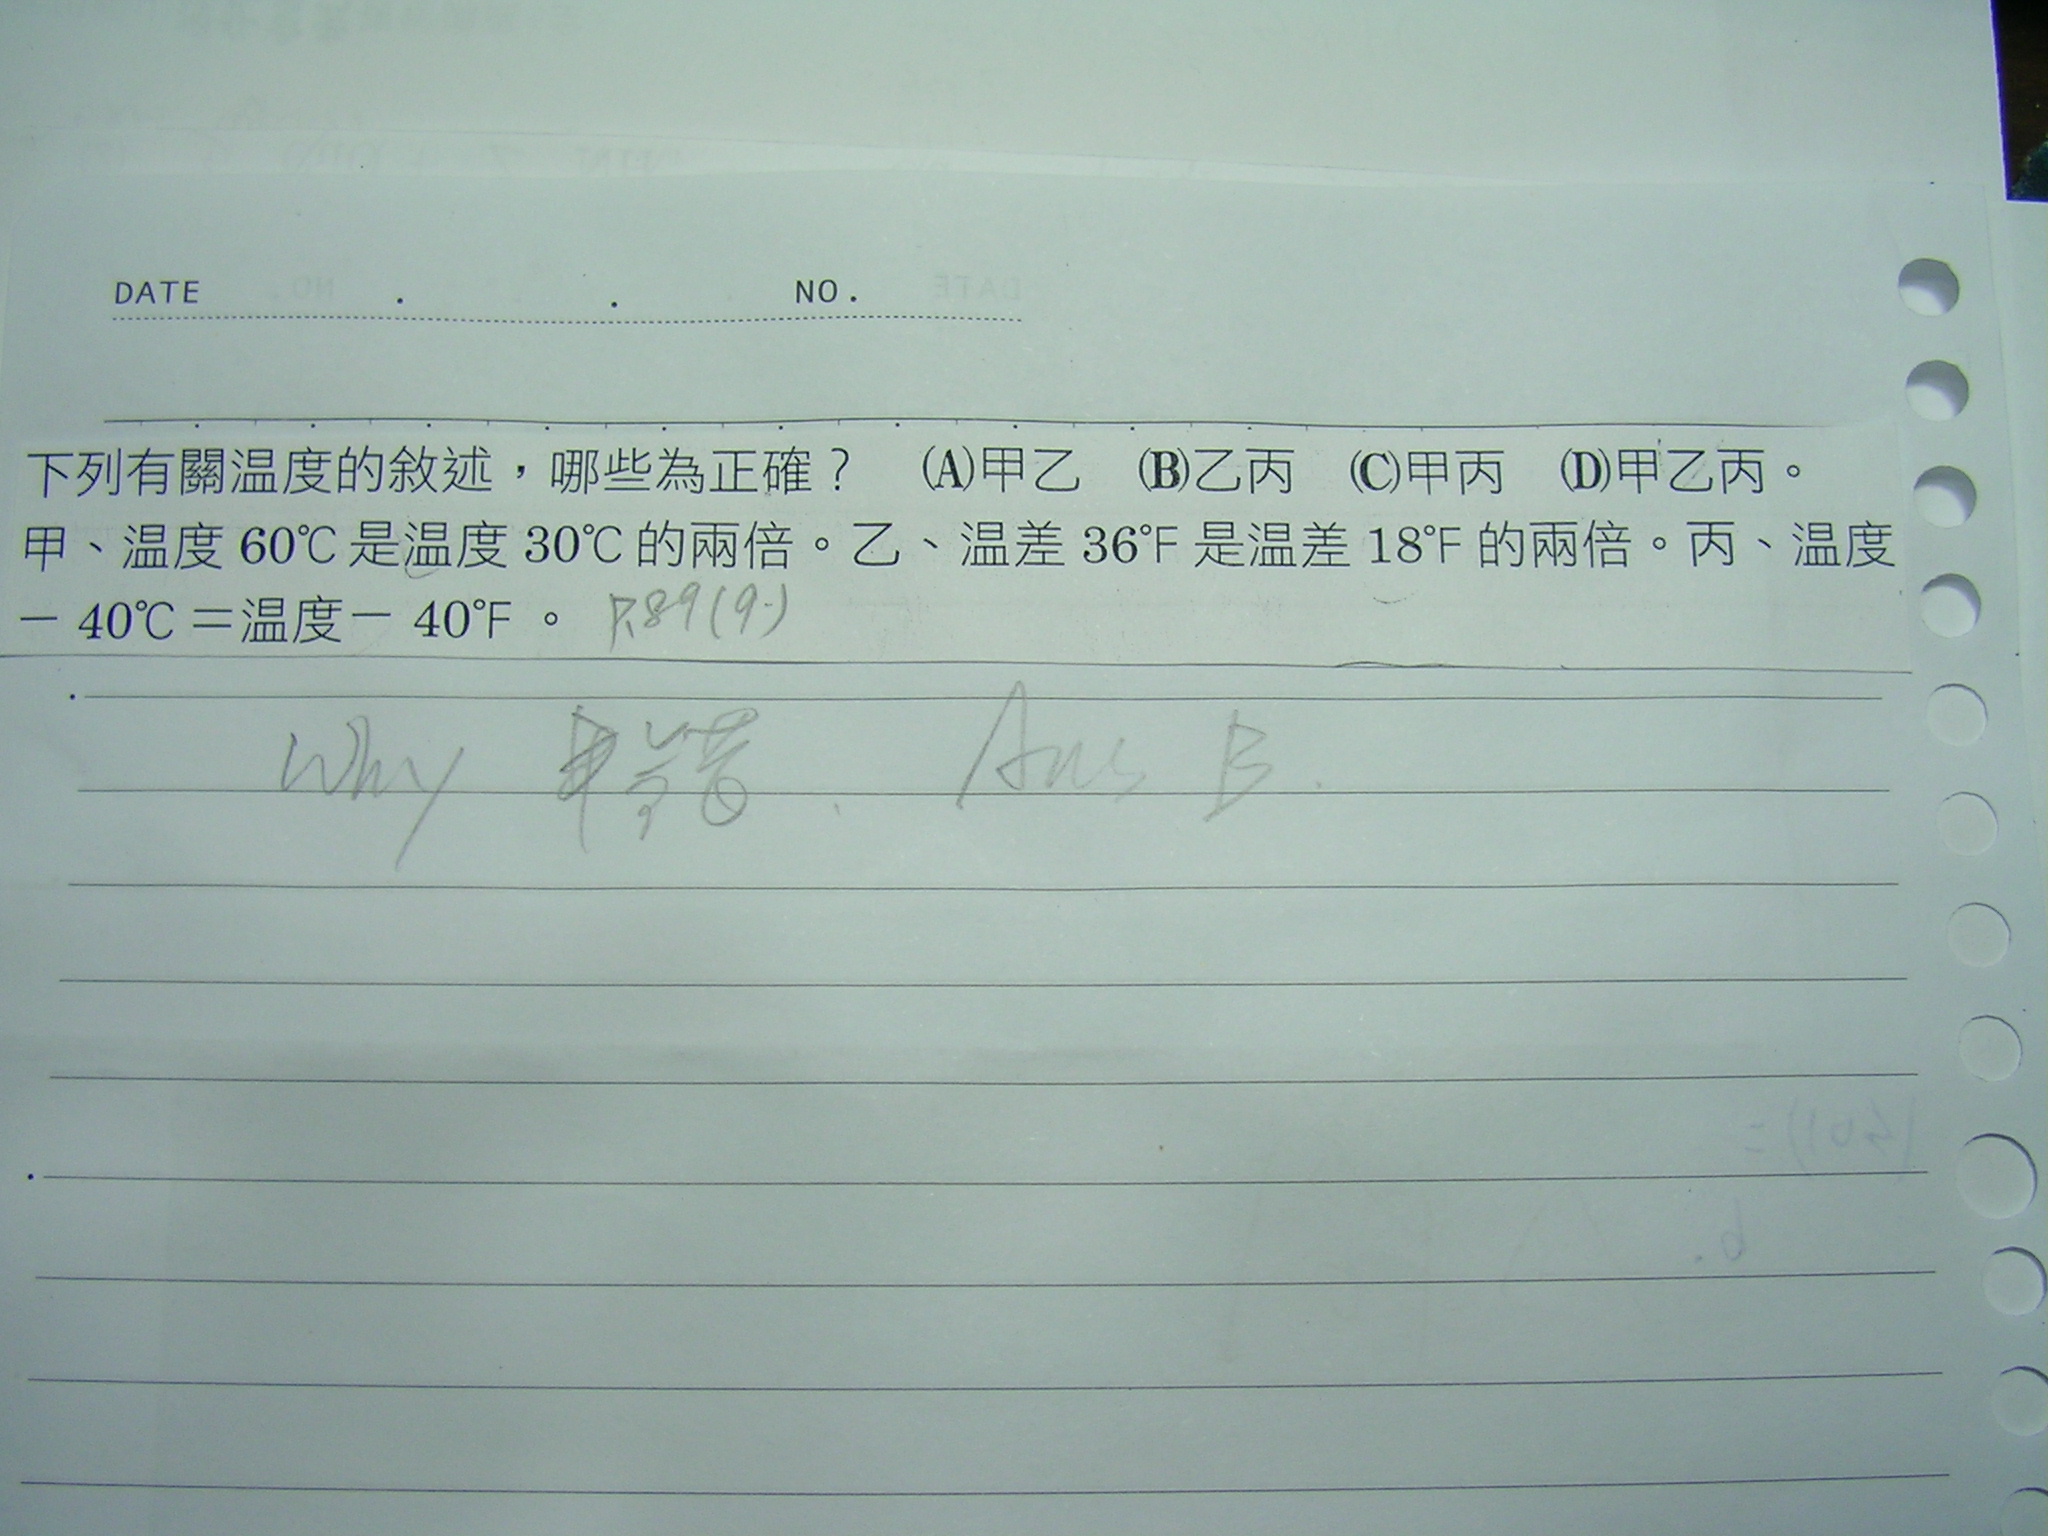 DATE . . NO.
下列有關温度的敘述，哪些為正確？ (A)甲乙 (B)乙丙 (C)甲丙 (D)甲乙丙。
甲、温度 60℃ 是温度 30℃ 的兩倍。乙、温差 36℉ 是温差 18℉ 的兩倍。丙、温度
－ 40℃＝温度－ 40℉ 。 P.89(9.)
Why 甲錯. Ans B.